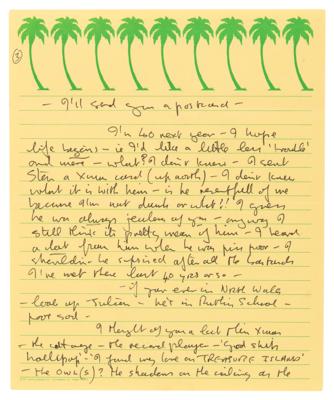 ③
- I'll send you a postcard -
I'm 40 next year - I hope
life begins - ie I'd like a little less 'trouble'
and more - what? I don't know - I sent
Stan a Xmas card (up north) - I don't know
what it is with him - is he resentful of me
because I'm not drunk or what!! I guess
he was always jealous of you - anyway I
still think it's pretty mean of him - I heard
a lot from him when he was piss poor - I
shouldn't be suprised after all the bastards
I've met these last 40 yrs or so -
- if you ever in North Wales
- look up Julian - he's in Ruthin School -
poor sod -
I thought of you a lot this Xmas
- the cottage - the record player - 'God Shit
- I fund my love on 'TREASURE ISLAND'
- the OWL(S)? the shadows on the ceiling as the